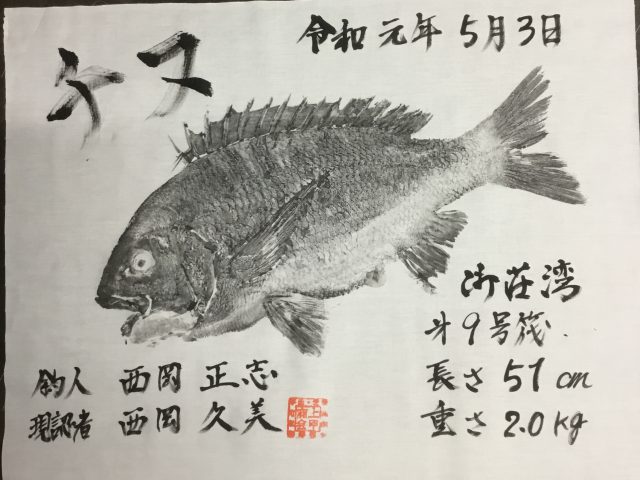 令和元年5月3日
チヌ
御荘湾
斗9号筏.
長さ51cm
重さ2.0kg
釣人 西岡 正志
現認者 西岡 久美